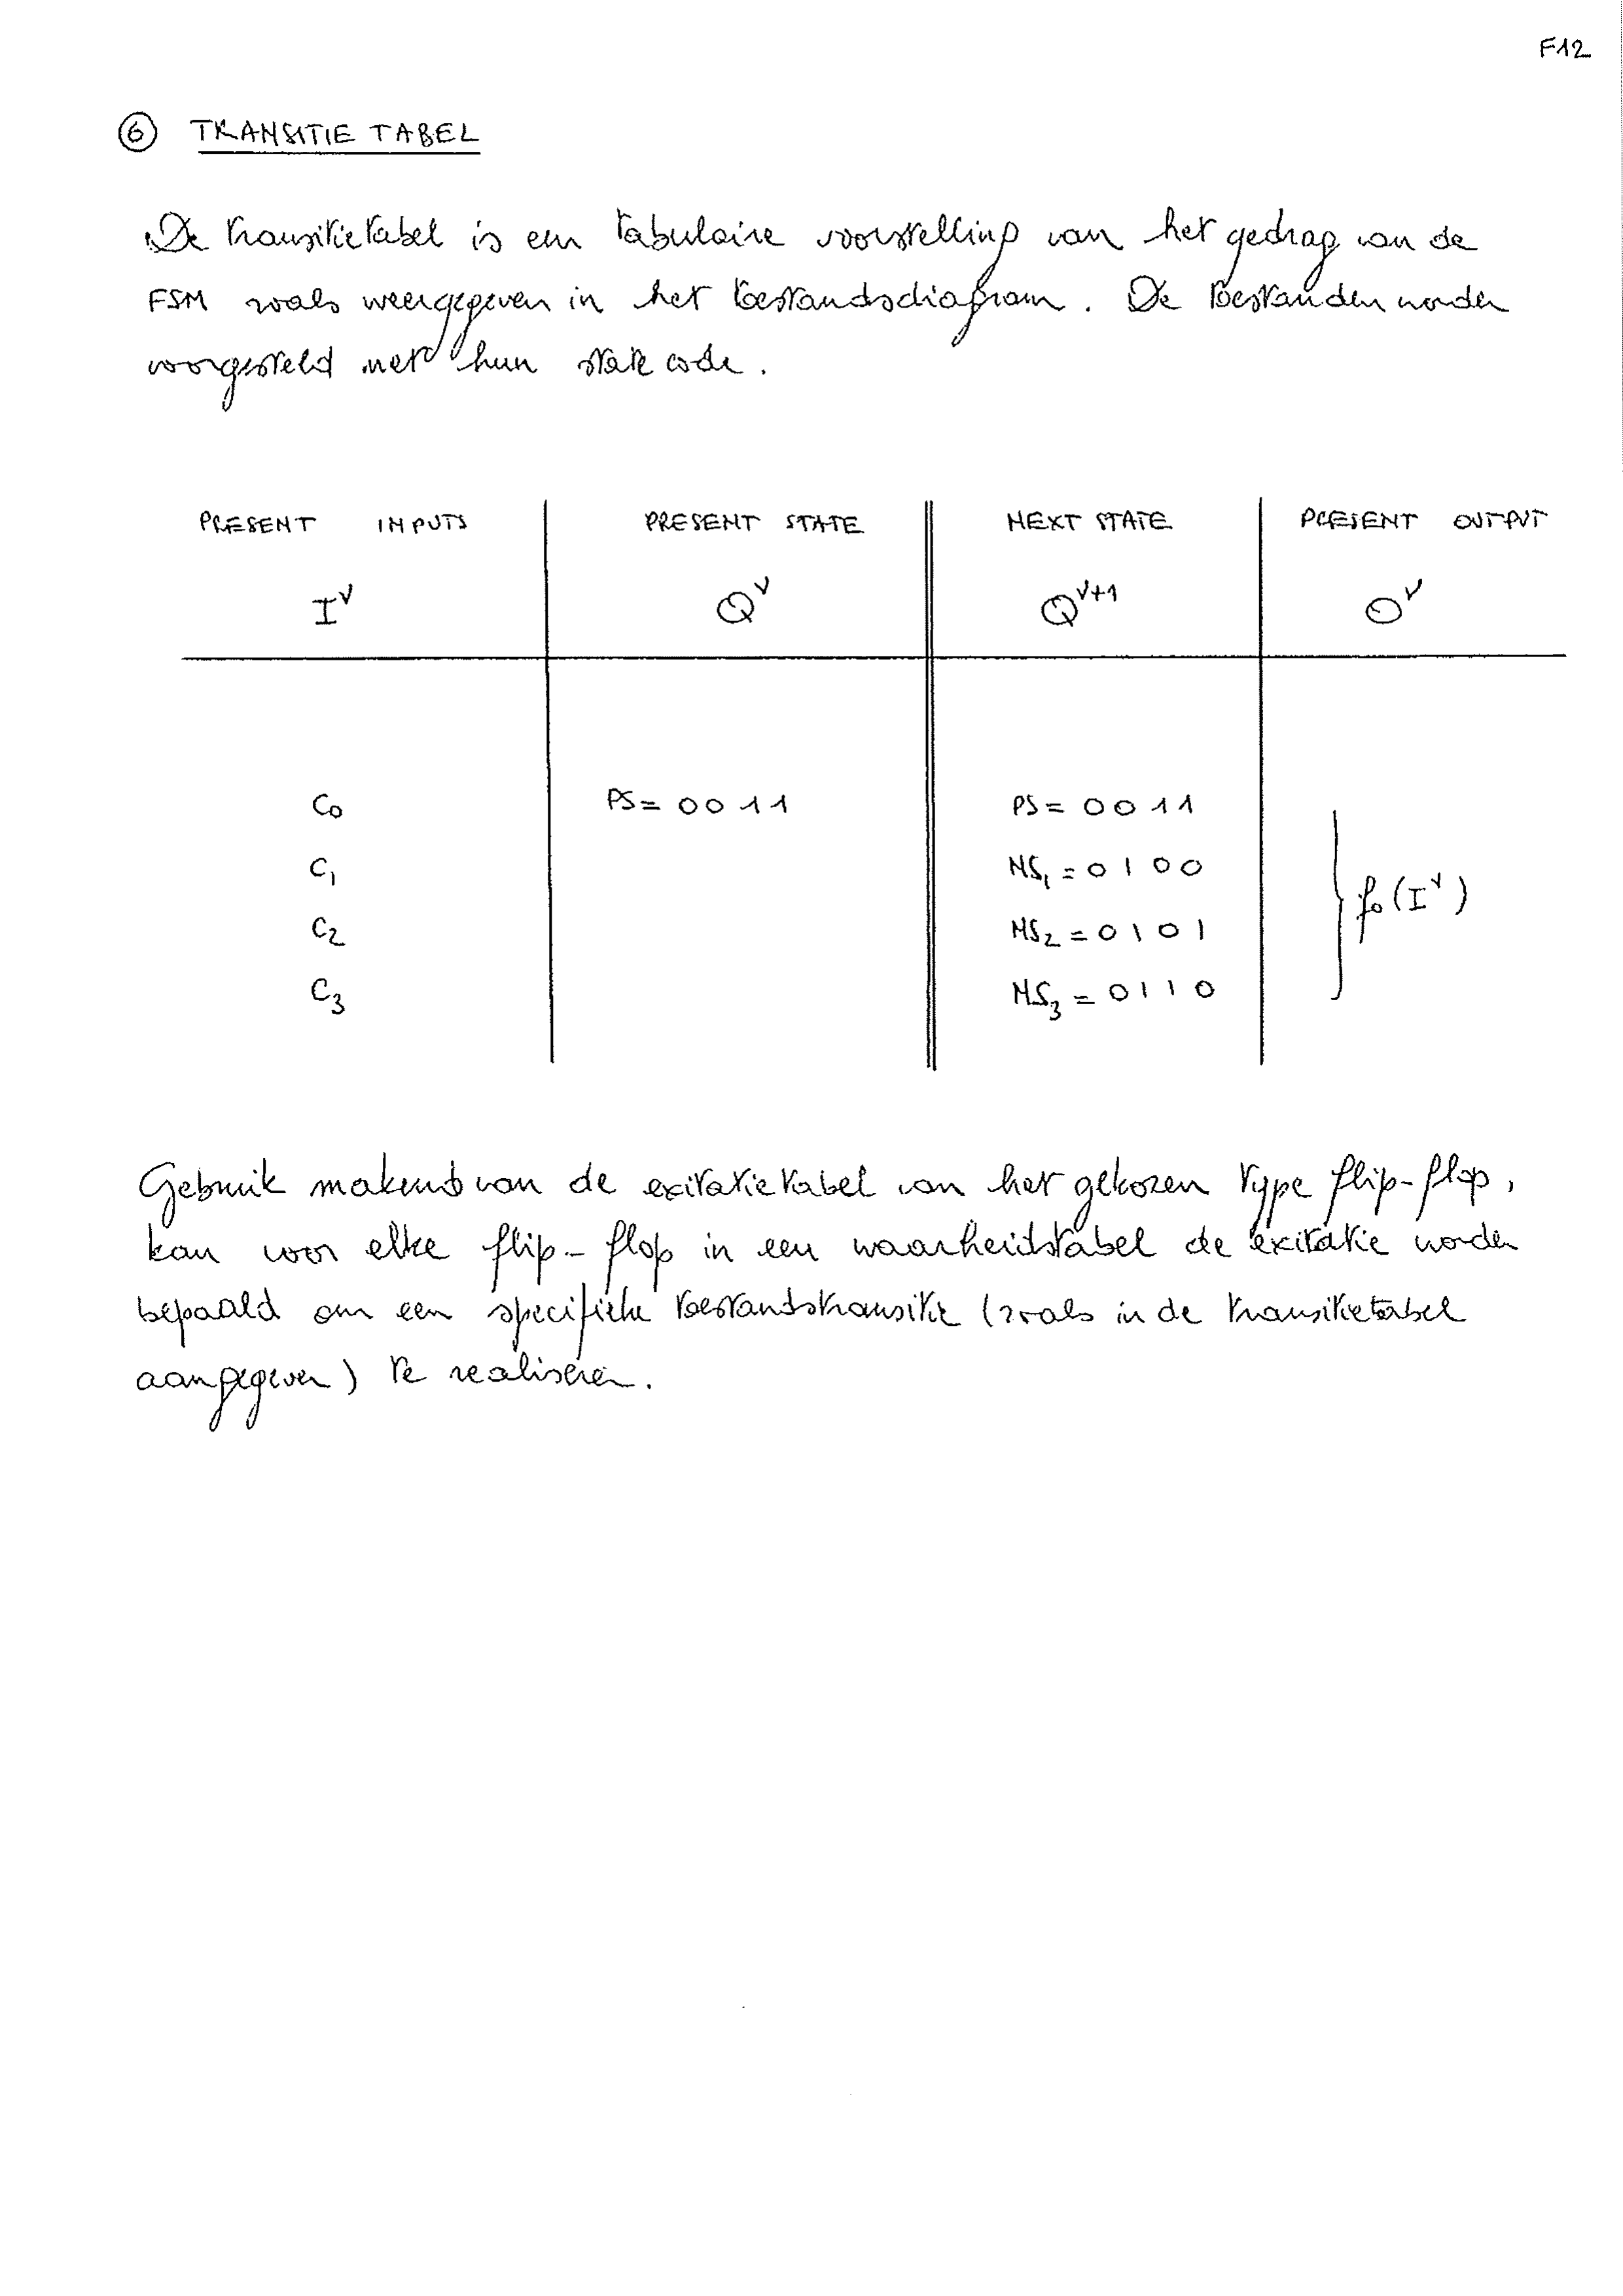 F12
⑥ TRANSITIE TABEL
De transitietabel is een tabulaire voorstelling van het gedrag van de
FSM zoals weergegeven in het toestandsdiagram. De toestanden worden
voorgesteld met hun state code.
PRESENT INPUTS PRESENT STATE NEXT STATE PRESENT OUTPUT
I^ν Q^ν Q^ν+1 O^ν
C0 PS = 0 0 1 1 PS = 0 0 1 1
C1 NS1 = 0 1 0 0
f0 (I^ν)
C2 NS2 = 0 1 0 1
C3 NS3 = 0 1 1 0
Gebruik makend van de excitatietabel van het gekozen type flip-flop,
kan voor elke flip-flop in een waarheidstabel de excitatie worden
bepaald om een specifieke toestandstransitie (zoals in de transitietabel
aangegeven) te realiseren.